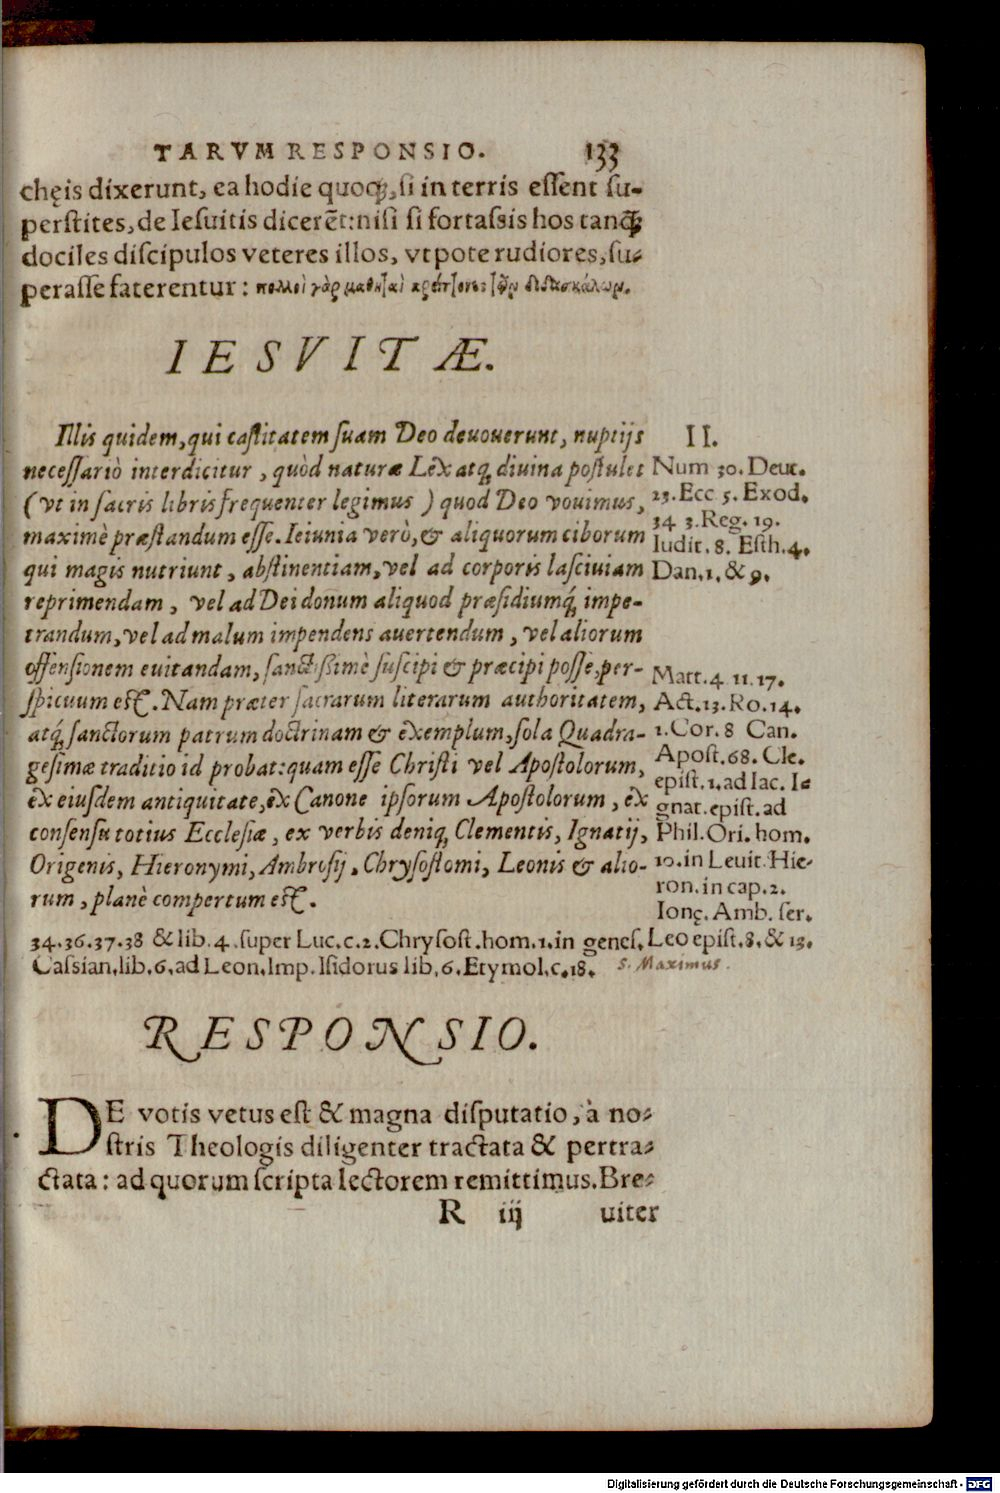 TARVM RESPONSIO. 133
chęis dixerunt, ea hodie quoq;, si in terris essent su-
perstites, de Iesuitis dicerēt: nisi si fortassis hos tanq;
dociles discipulos veteres illos, vtpote rudiores, su-
perasse faterentur: πολλοὶ γὰρ μαθηταὶ κρείττονες τῶν διδασκάλων.
IESVITÆ.
Illis quidem, qui castitatem suam Deo deuouerunt, nuptijs
necessariò interdicitur, quòd naturæ Lex atq; diuina postulet
(vt in sacris libris frequenter legimus) quod Deo vouimus,
maximè præstandum esse. Ieiunia verò, & aliquorum ciborum
qui magis nutriunt, abstinentiam, vel ad corporis lasciuiam
reprimendam, vel ad Dei donum aliquod præsidiumq́; impe-
trandum, vel ad malum impendens auertendum, vel aliorum
offensionem euitandam, sanctissimè suscipi & præcipi posse, per-
spicuum est. Nam præter sacrarum literarum authoritatem,
atq́; sanctorum patrum doctrinam & exemplum, sola Quadra-
gesimæ traditio id probat: quam esse Christi vel Apostolorum,
ex eiusdem antiquitate, ex Canone ipsorum Apostolorum, ex
consensu totius Ecclesiæ, ex verbis deniq; Clementis, Ignatij,
Origenis, Hieronymi, Ambrosij, Chrysostomi, Leonis & alio-
rum, planè compertum est.
II.
Num 30. Deut.
23. Ecc 5. Exod.
34 3. Reg. 19.
Iudit. 8. Esth. 4.
Dan. 1. & 9.
Matt. 4 11. 17.
Act. 13. Ro. 14.
1. Cor. 8 Can.
Apost. 68. Cle.
epist. 1. ad Iac. I-
gnat. epist. ad
Phil. Ori. hom.
10. in Leuit. Hie-
ron. in cap. 2.
Ionę. Amb. ser.
34. 36. 37. 38 & lib. 4. super Luc. c. 2. Chrysost. hom. 1. in genes. Leo epist. 8. & 13.
Cassian. lib. 6. ad Leon. Imp. Isidorus lib. 6. Etymol. c. 18. S. Maximus.
RESPONSIO.
DE votis vetus est & magna disputatio, à no-
stris Theologis diligenter tractata & pertra-
ctata: ad quorum scripta lectorem remittimus. Bre-
R iij uiter
Digitalisierung gefördert durch die Deutsche Forschungsgemeinschaft - DFG